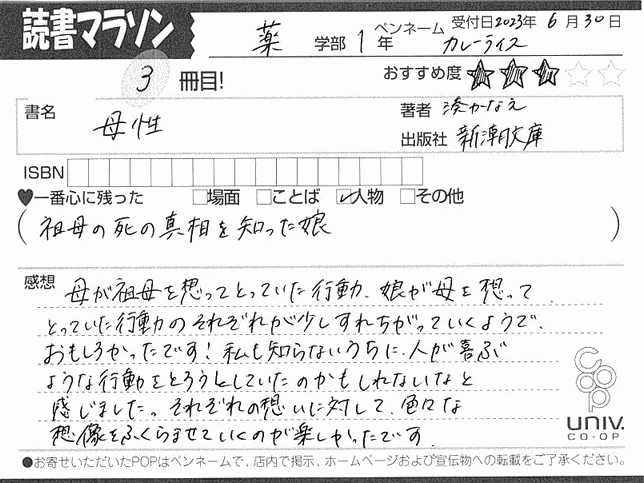 読書マラソン
薬 学部 1 年 ペンネーム カレーライス 受付日2023年 6月 30日
3 冊目! おすすめ度 ★★★☆☆
書名 母性
著者 湊かなえ
出版社 新潮文庫
ISBN
♥一番心に残った □場面 □ことば ☑人物 □その他
(祖母の死の真相を知った娘)
感想 母が祖母を想ってとっていた行動、娘が母を想って
とっていた行動のそれぞれが少しすれちがっていくようで、
おもしろかったです!私も知らないうちに、人が喜ぶ
ような行動をとろうとしていたのかもしれないなと
感じました。それぞれの想いに対して、色々な
想像をふくらませていくのが楽しかったです。
coop
UNIV.
CO-OP
●お寄せいただいたPOPはペンネームで、店内で掲示、ホームページおよび宣伝物への転載をご了承ください。